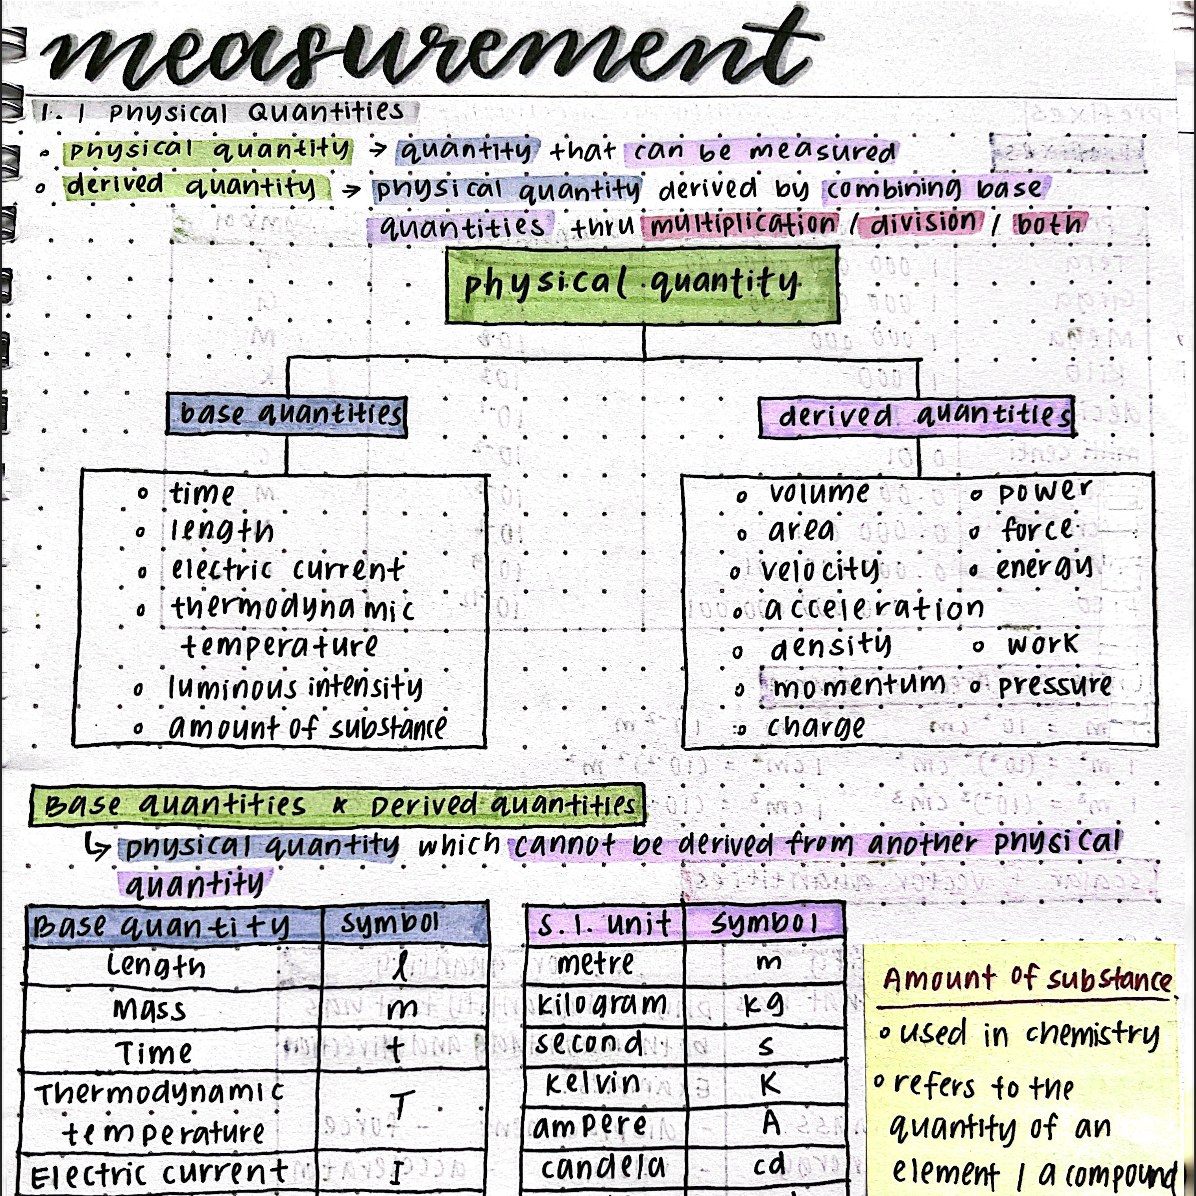 measurement
1.1 Physical Quantities
• physical quantity → quantity that can be measured
• derived quantity → physical quantity derived by combining base
quantities thru multiplication / division / both
physical quantity
base quantities
• time
• length
• electric current
• thermodynamic
temperature
• luminous intensity
• amount of substance
derived quantities
• volume • power
• area • force
• velocity • energy
• acceleration
• density • work
• momentum • pressure
• charge
Base quantities * Derived quantities
↳ physical quantity which cannot be derived from another physical
quantity
Base quantity symbol
Length l
Mass m
Time t
Thermodynamic
temperature T
Electric current I
S.I. unit symbol
metre m
kilogram kg
second s
kelvin K
ampere A
candela cd
Amount of substance
• used in chemistry
• refers to the
quantity of an
element / a compound